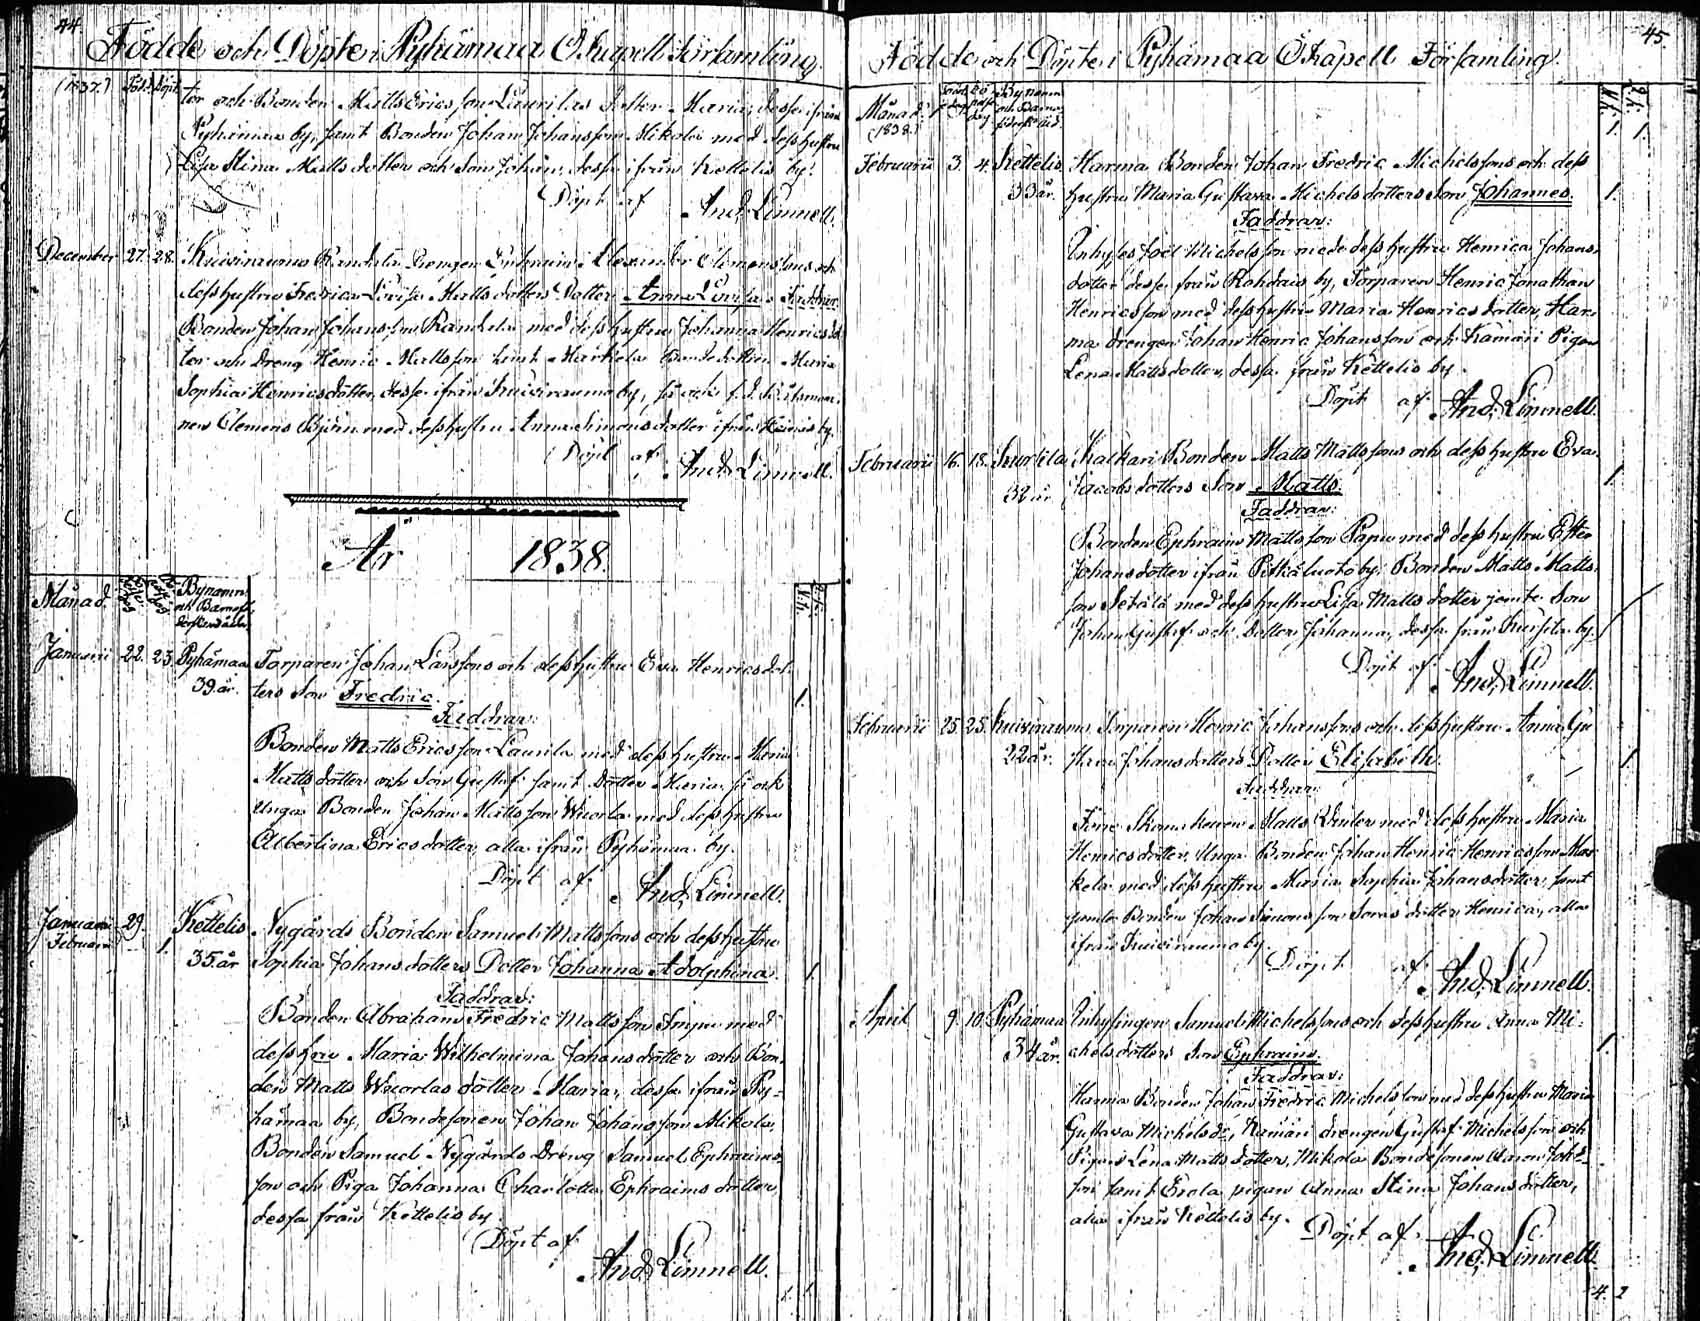 44.
Födde och Döpte i Pyhämaa Ö. Kapell Församling.
(1837.) Född Döpt
ter och Bonden Matts Ericsson Laurilas Dotter Maria, desse ifrån
Pyhämaa by, samt Bonden Johan Johansson Mikola med dess hustru
Stina Matts dotter och Son Johan, desse ifrån Kettelis by.
Döpt af And. Limnell.
December 27. 28. Kuiviraumo Randala Drengen Ephraim Alexander Clemenssons och
dess hustru Fredrica Lovisa Matts dotters Dotter Anna Lovisa. Faddrar:
Bonden Johan Johansson Randala med dess hustru Johanna Henricsdot
ter och Dreng Henric Mattsson samt Markela Bondedottren Maria
Sophia Henricsdotter, desse ifrån Kuiviraumo by, så ock f. d. Båtsman
nen Clemens Björn med dess hustru Anna Simonsdotter ifrån by.
Döpt af And. Limnell.
År 1838.
Månad. Bynamn
och Barnaf
Januarii 22. 23. Pyhämaa Torparen Johan Larssons och dess hustru Eva Henricsdot
39 år. ters Son Fredric. 1.
Faddrar:
Bonden Matts Ericsson Laurila med dess hustru Maria
Mattsdotter och Son Gustaf samt Dotter Maria, så ock
Unga Bonden Johan Mattsson Wuorla med dess hustru
Albertina Ericsdotter, alla ifrån Pyhämaa by.
Döpt af: And. Limnell.
Januarii 29. Kettelis Nygårds Bonden Samuel Mattssons och dess hustru
Februarii 1. 35 år Sophia Johansdotters Dotter Johanna Adolphina. 1.
Faddrar:
Bonden Abraham Fredric Mattsson med
dess hru Maria Wilhelmina Johansdotter och Bon
den Matts Wuorlas dotter Maria, dessa ifrån Py=
hämaa by, Bondesonen Johan Johansson Mikola,
Bonden Samuel Nygårds Dreng Samuel Ephraims
son och Piga Johanna Charlotta Ephraims dotter,
dessa från Kettelis by.
Döpt af And. Limnell.
1. 1.
45.
Födde och Döpte i Pyhämaa Ö. Kapell Församling.
Månad. Bynamn
(1838.) och Barna 1. 1.
Februarii 3. 4. Kettelis Harma Bonden Johan Fredric Michelssons och dess
33 år. hustru Maria Gustava Michelsdotters Son Johannes. 1.
Faddrar:
Inhyses Joel Michelsson med dess hustru Henrica Johans
dotter desse från Rohdais by, Torparen Henric Jonathan
Henricsson med dess hustru Maria Henricsdotter, Har
ma drengen Johan Henric Johansson och Kamäri Pigan
Lena Mattsdotter, dessa från Kettelis by.
Döpt af. And. Limnell.
Februarii 16. 18. Kukari Bonden Matts Mattssons och dess hustru Eva
32 år. Jacobsdotters Son Matts. 1.
Faddrar:
Bonden Ephraim Mattsson Papu med dess hustru Ester
Johansdotter ifrån Pitkäluoto by. Bonden Matts Matts
son Setälä med dess hustru Lisa Mattsdotter jemte Son
Johan Gustaf och Dotter Johanna, dessa från by.
Döpt af. And. Limnell.
Februarii 25. 25. Kuiviraumo Torparen Henric Johanssons och dess hustru Anna Gu
22 år. stava Johansdotters Dotter Elisabeth. 1.
Faddrar:
Matts med dess hustru Maria
Henricsdotter, Unga Bonden Johan Henric Henricsson Mar
kela med dess hustru Maria Sophia Johansdotter, samt
gamla Bonden Johan Simonssons dotter Henrica, alla
ifrån Kuiviraumo by.
Döpt af. And. Limnell.
April 9. 10. Pyhämaa Inhysingen Samuel Michelssons och dess hustru Anna Mi=
34 år. chelsdotters Son Ephraim. 1.
Faddrar:
Harma Bonden Johan Fredric Michelsson med dess hustru Maria
Gustava Michelsdr, Kamäri drengen Gustaf Michelsson och
Pigan Lena Mattsdotter, Mikola Bondesonen Aaron Johs=
son samt Erola pigan Anna Stina Johansdotter,
alla ifrån Kettelis by.
Döpt af. And. Limnell.
4. 2